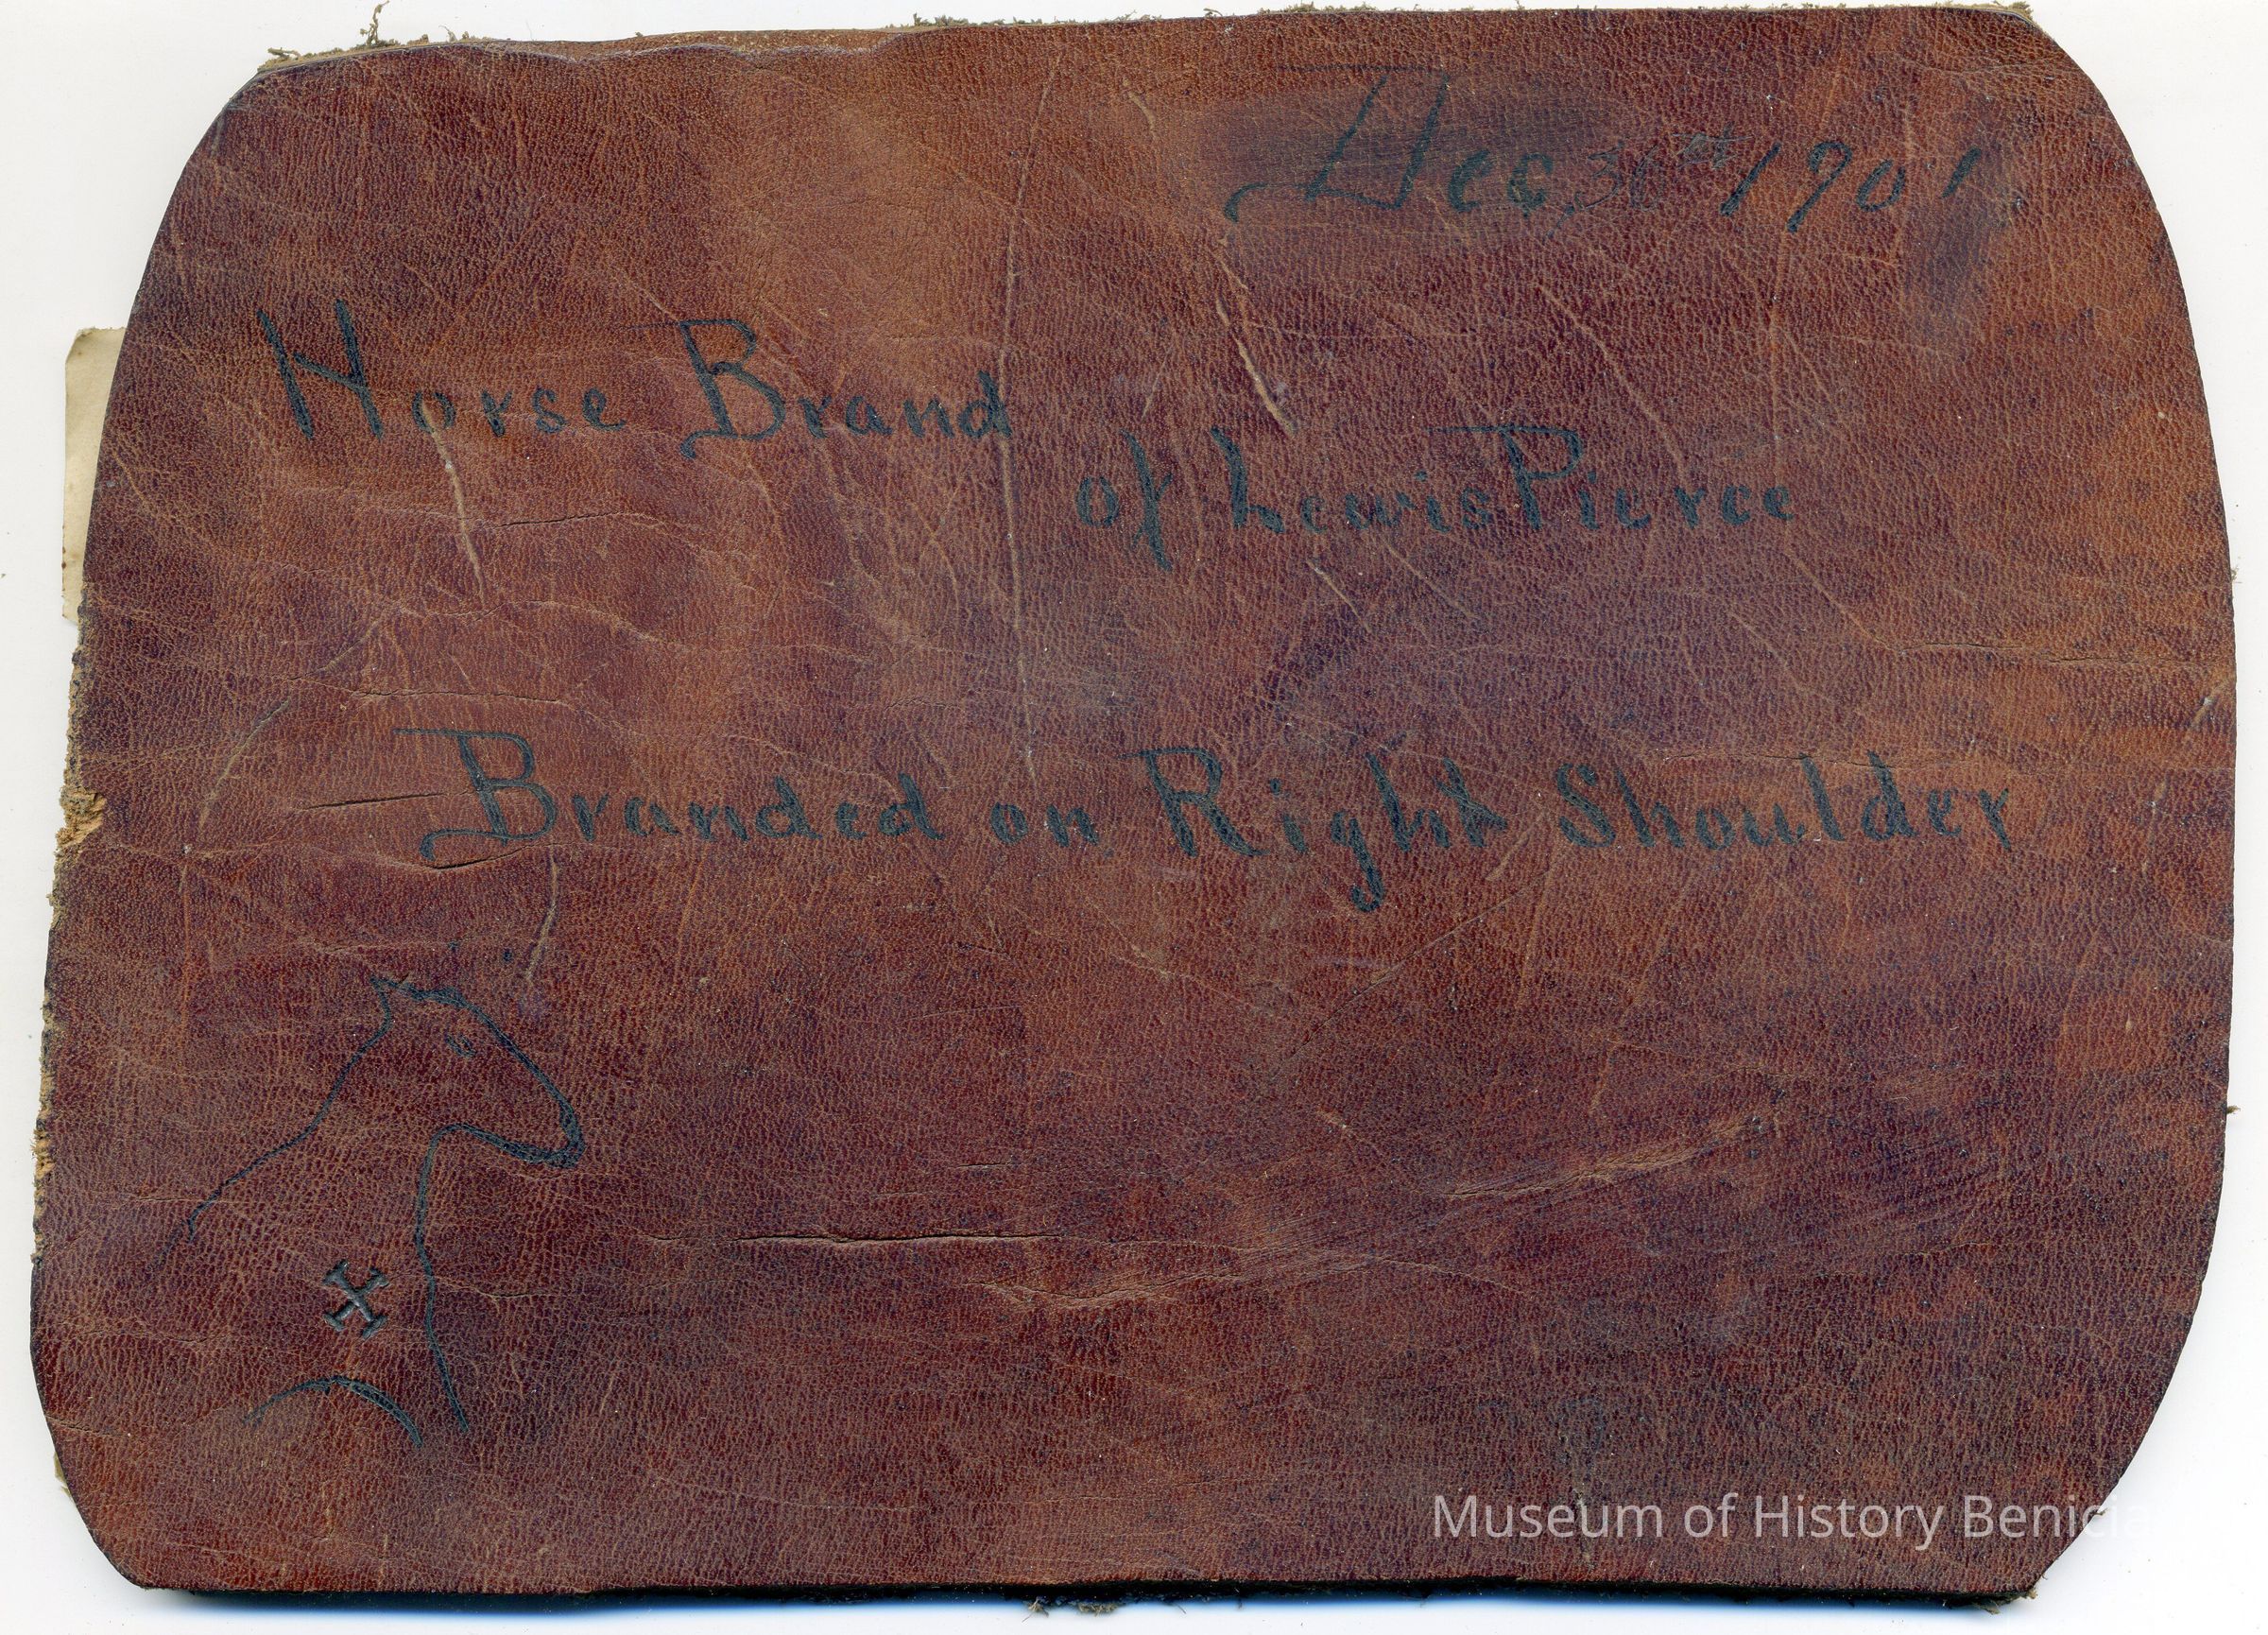 Dec. 1901
Horse Brand
of Lewis Pierce
Branded on Right Shoulder
Museum of History Benicia